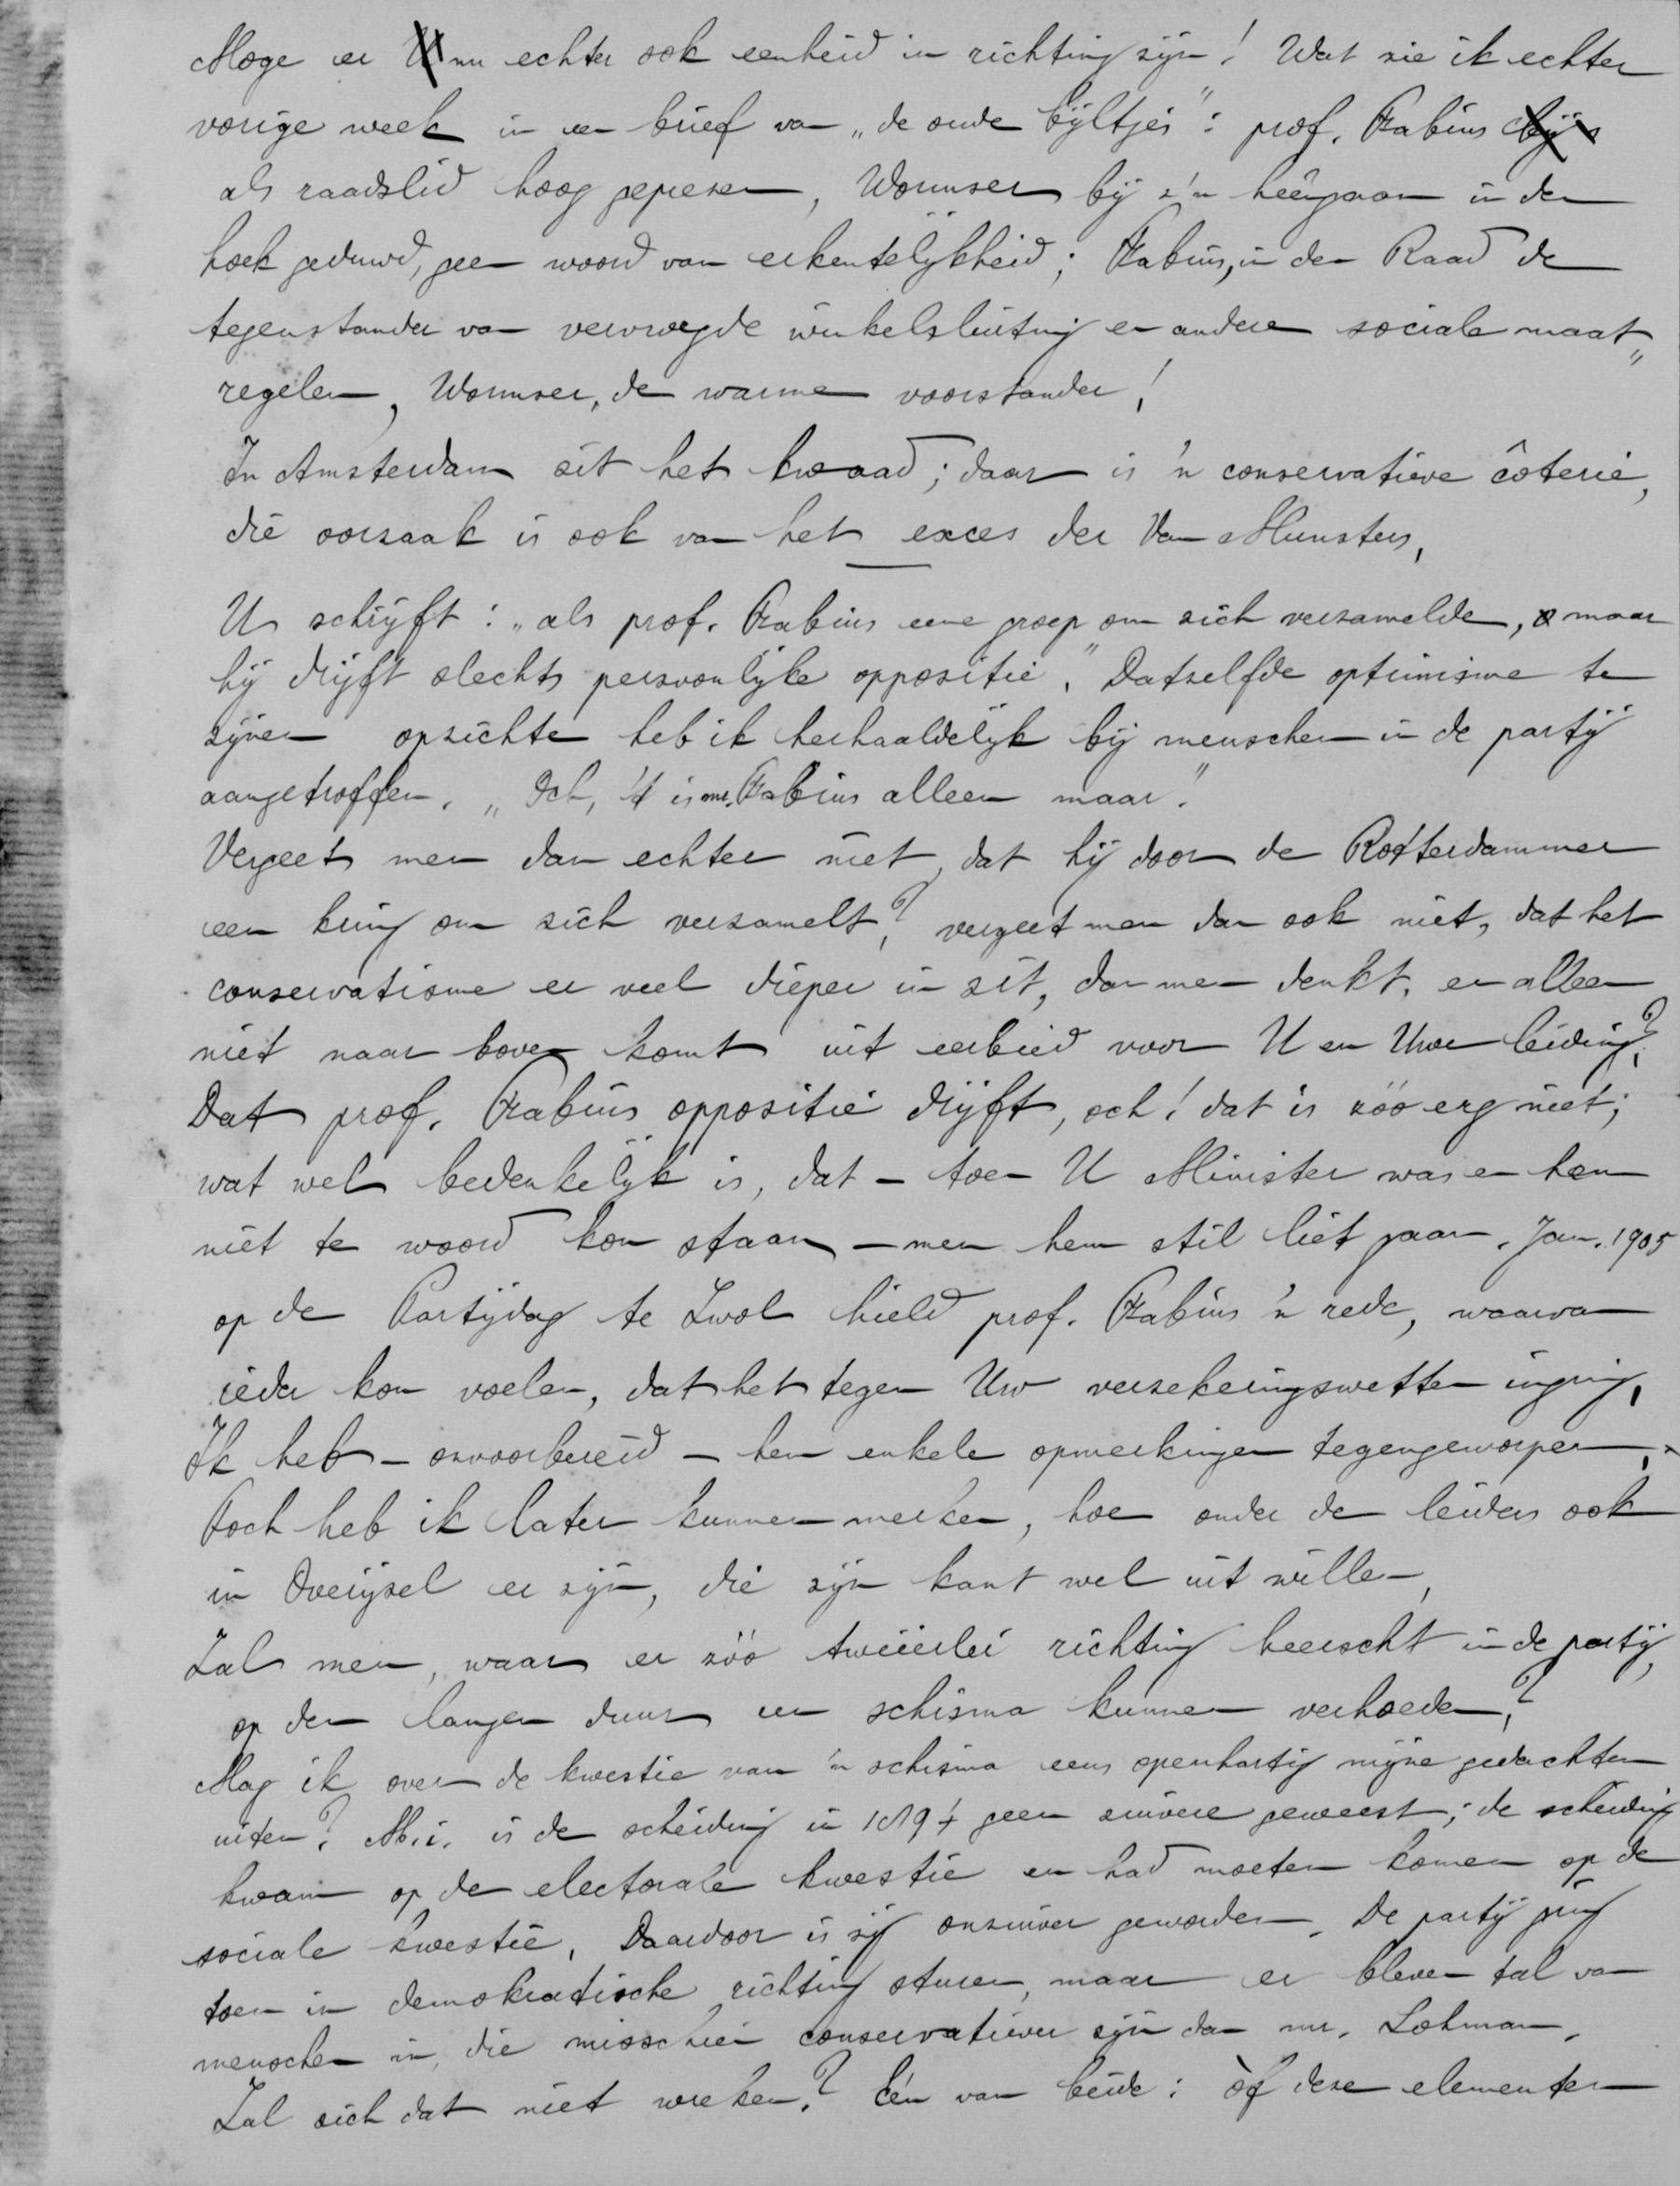 Moge er nu echter ook eenheid in richting zijn! Wat zie ik echter
vorige week in een brief van „de oude bijltjes": prof. Fabius
als raadslid hoog geprezen, Wormser bij z'n heêngaan in den
hoek geduwd, geen woord van erkentelijkheid; Fabius, in den Raad de
tegenstander van vervroegde winkelsluiting en andere sociale maat„
regelen, Wormser, de warme voorstander!
In Amsterdam zit het kwaad; daar is 'n conservatieve côterie,
die oorzaak is ook van het exces der Van Munsters.
U schrijft: „als prof. Fabius eene groep om zich verzamelde, maar
hij drijft slechts persoonlijke oppositie". Datzelfde optimisme te
zijnen opzichte heb ik herhaaldelijk bij menschen in de partij
aangetroffen. „Och, 't is mr. Fabius alleen maar".
Vergeet men dan echter niet, dat hij door de Rotterdammer
een kring om zich verzamelt? vergeet men dan ook niet, dat het
conservatisme er veel dieper in zit, dan men denkt, en alleen
niet naar boven komt uit eerbied voor U en Uwe leiding?
Dat prof. Fabius oppositie drijft, och! dat is zóó erg niet;
wat wel bedenkelijk is, dat – toen U Minister was en hem
niet te woord kon staan – men hem stil liet gaan. Jan. 1905
op de Partijdag te Zwol hield prof. Fabius 'n rede, waarvan
ieder kon voelen, dat het tegen Uw verzekeringswetten inging.
Ik heb – onvoorbereid – hem enkele opmerkingen tegengeworpen.
Toch heb ik later kunnen merken, hoe onder de leiders ook
in Overijsel er zijn, die zijn kant wel uit willen.
Zal men, waar er zóó tweëerlei richting heerscht in de partij,
op den langen duur een schisma kunnen verhoeden?
Mag ik over de kwestie van 'n schisma eens openhartig mijne gedachten
uiten? M.i. is de scheiding in 1894 geen zuivere geweest; de scheiding
kwam op de electorale kwestie en had moeten komen op de
sociale kwestie. Daardoor is zij onzuiver geworden. De partij ging
toen in demokratische richting sturen, maar er bleven tal van
menschen in, die misschien conservatiever zijn dan mr. Lohman.
Zal zich dat niet wreken? Eén van beide: òf deze elementen